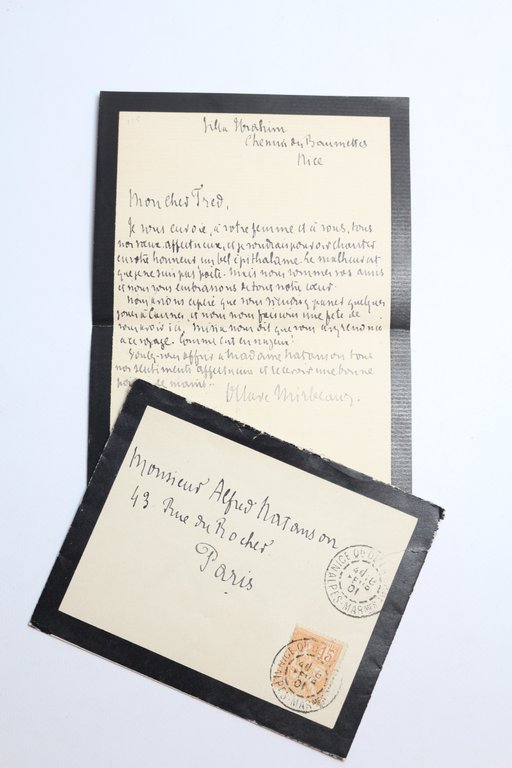 Villa Ibrahim
Chemin des Baumettes
Nice
Mon cher Fred,
Je vous envoie, à votre femme et à vous, tous
nos vœux affectueux, et je voudrais pouvoir chanter
en votre honneur un bel épithalame. Le malheur est
que je ne suis pas poète. Mais nous sommes vos amis
et nous vous embrassons de tout notre cœur.
Nous avions espéré que vous viendriez passer quelques
jours à Cannes, et nous nous faisions une fête de
vous avoir ici. Misia nous dit que vous avez renoncé
à ce voyage. Comme c'est ennuyeux!
Voulez-vous offrir à Madame Natanson tous
nos sentiments affectueux et recevoir une bonne
de mains.
Octave Mirbeau
Monsieur Alfred Natanson
43 Rue du Rocher
Paris
NICE
ALPES-MARMES
01
15
NICE
ALPES-MAR
01